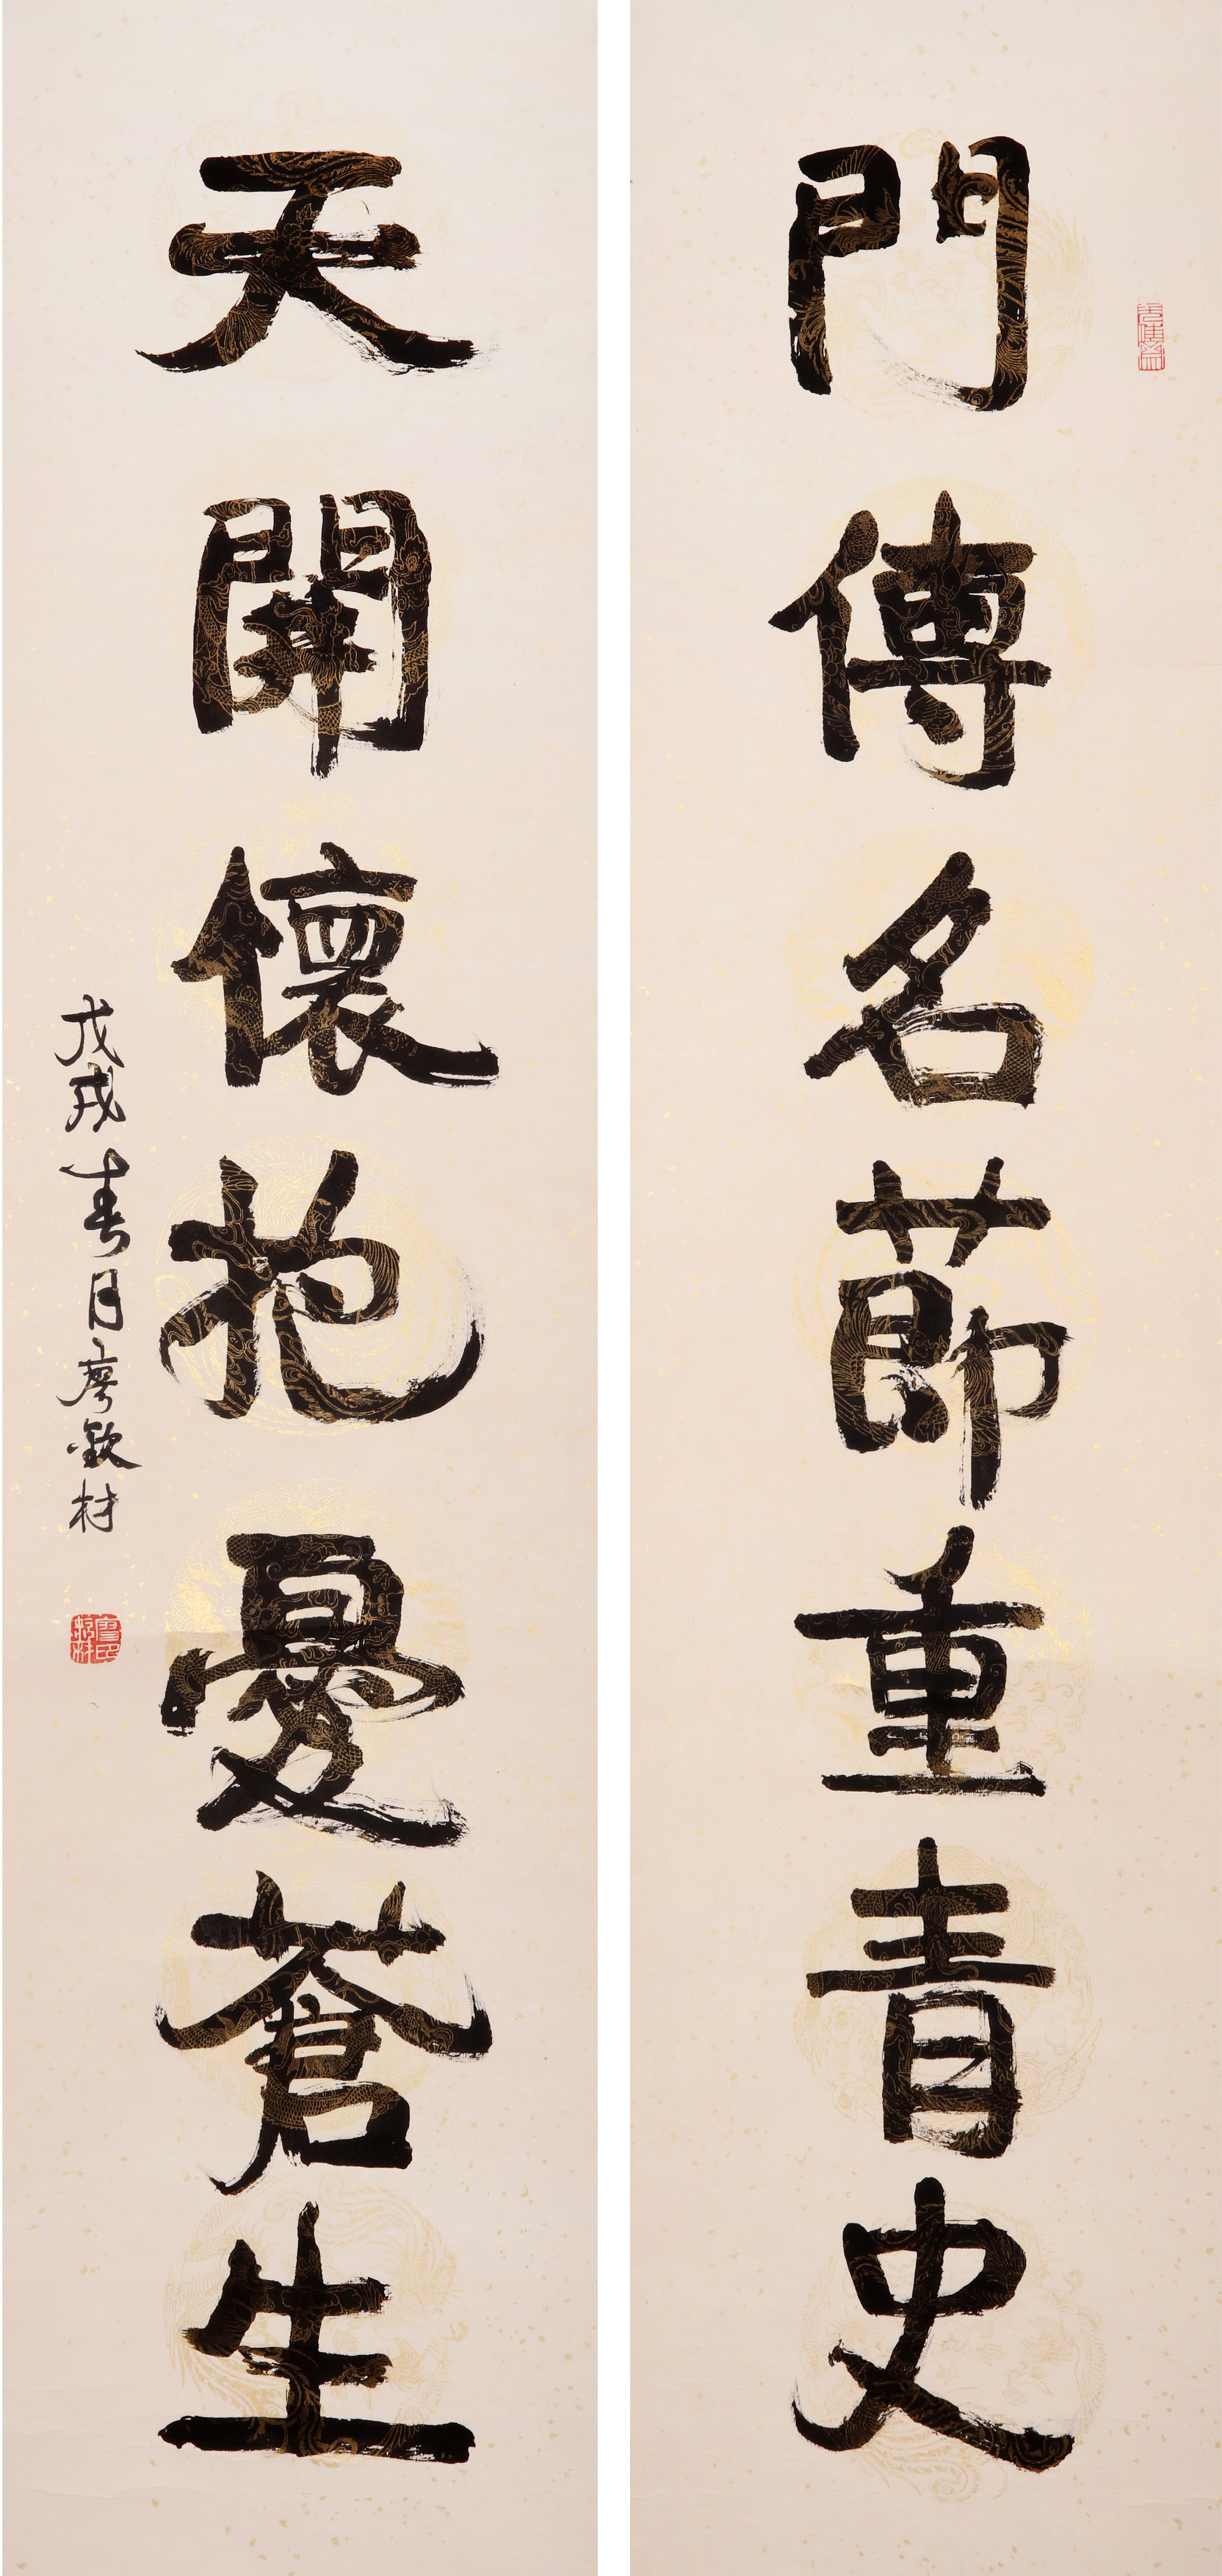 門傳名節重青史
天開懷抱憂蒼生
戊戌春月廖欽材